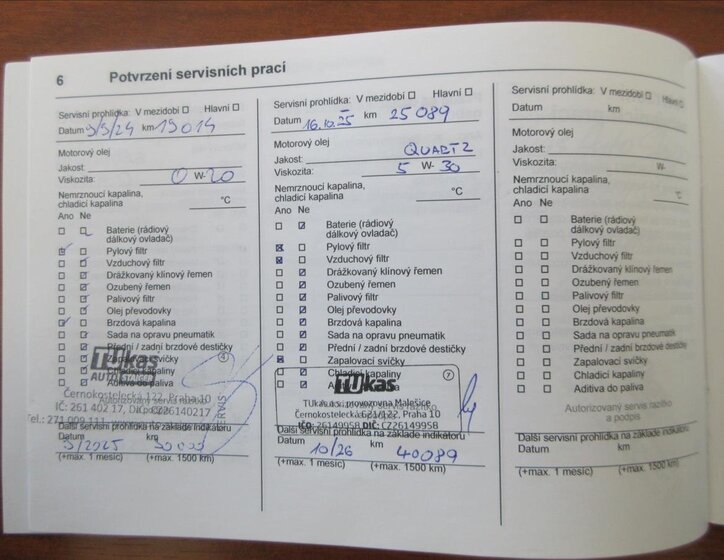 6 Potvrzení servisních prací
Servisní prohlídka: V mezidobí Hlavní
Datum 9/9/24 km 19014
Motorový olej
Jakost:
Viskozita: 0 W- 20
Nemrznoucí kapalina,
chladicí kapalina °C
Ano Ne
Baterie (rádiový
dálkový ovladač)
Pylový filtr
Vzduchový filtr
Drážkovaný klínový řemen
Ozubený řemen
Palivový filtr
Olej převodovky
Brzdová kapalina
Sada na opravu pneumatik
Přední / zadní brzdové destičky
Zapalovací svíčky
Chladicí kapaliny
Aditiva do paliva
TUkas
4
Černokostelecká 122, Praha 10
IČ: 261 402 17, DIČ: CZ26140217
Tel.: 271 009 111
Další servisní prohlídka na základě indikátoru
Datum km
9/2025
(+max. 1 měsíc) (+max. 1500 km)
Servisní prohlídka: V mezidobí Hlavní
Datum 16.10.25 km 25089
Motorový olej
Jakost: QUARTZ
Viskozita: 5 W- 30
Nemrznoucí kapalina,
chladicí kapalina °C
Ano Ne
Baterie (rádiový
dálkový ovladač)
Pylový filtr
Vzduchový filtr
Drážkovaný klínový řemen
Ozubený řemen
Palivový filtr
Olej převodovky
Brzdová kapalina
Sada na opravu pneumatik
Přední / zadní brzdové destičky
Zapalovací svíčky
Chladicí kapaliny
Aditiva do paliva
TUkas
7
TUkas a.s., provozovna Malešice
Černokostelecká 621/122, Praha 10
IČO: 26149958 DIČ: CZ26149958
Další servisní prohlídka na základě indikátoru
Datum km
10/26 40089
(+max. 1 měsíc) (+max. 1500 km)
Servisní prohlídka: V mezidobí Hlavní
Datum km
Motorový olej
Jakost:
Viskozita: W-
Nemrznoucí kapalina,
chladicí kapalina °C
Ano Ne
Baterie (rádiový
dálkový ovladač)
Pylový filtr
Vzduchový filtr
Drážkovaný klínový řemen
Ozubený řemen
Palivový filtr
Olej převodovky
Brzdová kapalina
Sada na opravu pneumatik
Přední / zadní brzdové destičky
Zapalovací svíčky
Chladicí kapaliny
Aditiva do paliva
Autorizovaný servis razítko
a podpis
Další servisní prohlídka na základě indikátoru
Datum km
(+max. 1 měsíc) (+max. 1500 km)